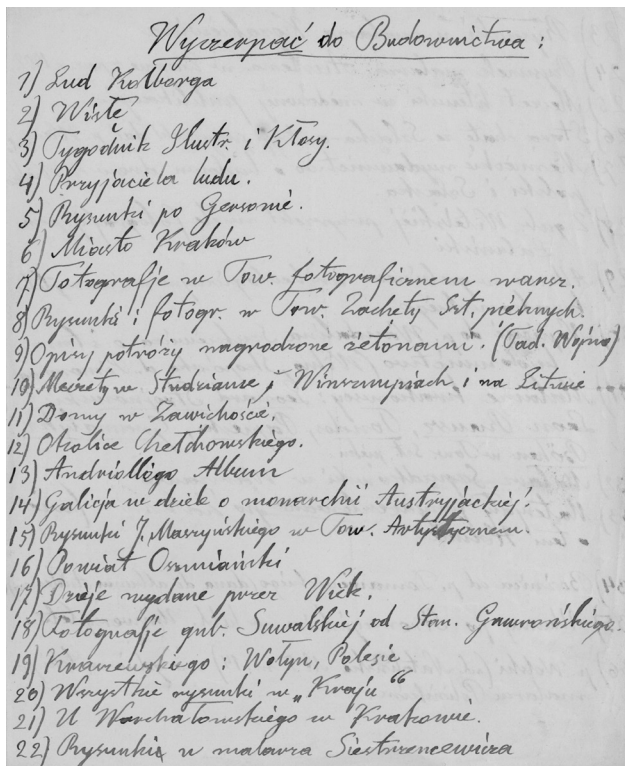 Wyczerpać do Budownictwa:
1) Lud Kolberga
2) Wisłę
3) Tygodnik Ilustr. i Kłosy.
4) Przyjaciela ludu.
5) Rysunki po Gersonie.
6) Miasto Kraków
7) Fotografje w Tow. fotograficznem warsz.
8) Rysunki i fotogr. w Tow. Zachęty Szt. pięknych.
9) Opisy potróży nagrodzone żetonami. (Tad. Wojno)
10) Meczety w Studziance i Winksznupiach i na Litwie
11) Domy w Zawichoście.
12) Okolice Chełchowskiego.
13) Andriollego Album
14) Galicja w dziele o monarchii Austryjackiej.
15) Rysunki J. Maszyńskiego w Tow. Artystycznem.
16) Powiat Oszmiański
17) Dzieje wydane przez Wiek.
18) Fotografje gub. Suwalskiej od Stan. Gawrońskiego.
19) Kraszewskiego: Wołyń, Polesie
20) Wszystkie rysunki w „Kraju“
21) U Warchałowskiego w Krakowie.
22) Rysunki u malarza Siestrzencewicza